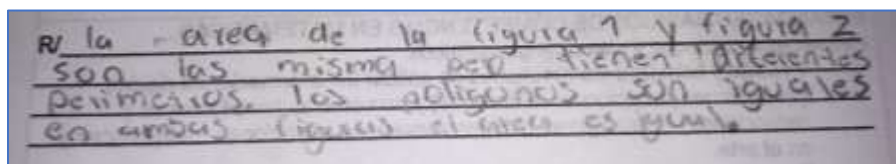 R/ la area de la figura 1 y figura 2
son las misma pero tienen diferentes
perimetros. los poligonos son iguales
en ambas figuras el area es igual.